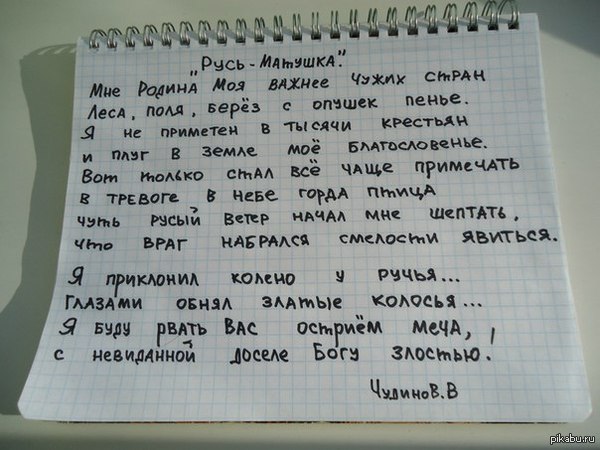 "Русь-Матушка".
Мне Родина Моя важнее чужих стран
Леса, поля, берёз с опушек пенье.
Я не приметен в тысячи крестьян
и плуг в земле моё благословенье.
Вот только стал всё чаще примечать
в тревоге в небе горда птица
чуть русый ветер начал мне шептать,
что враг набрался смелости явиться.
Я приклонил колено у ручья...
Глазами обнял златые колосья...
Я буду рвать вас остриём меча,
с невиданной доселе Богу злостью!
Чудинов.В
pikabu.ru